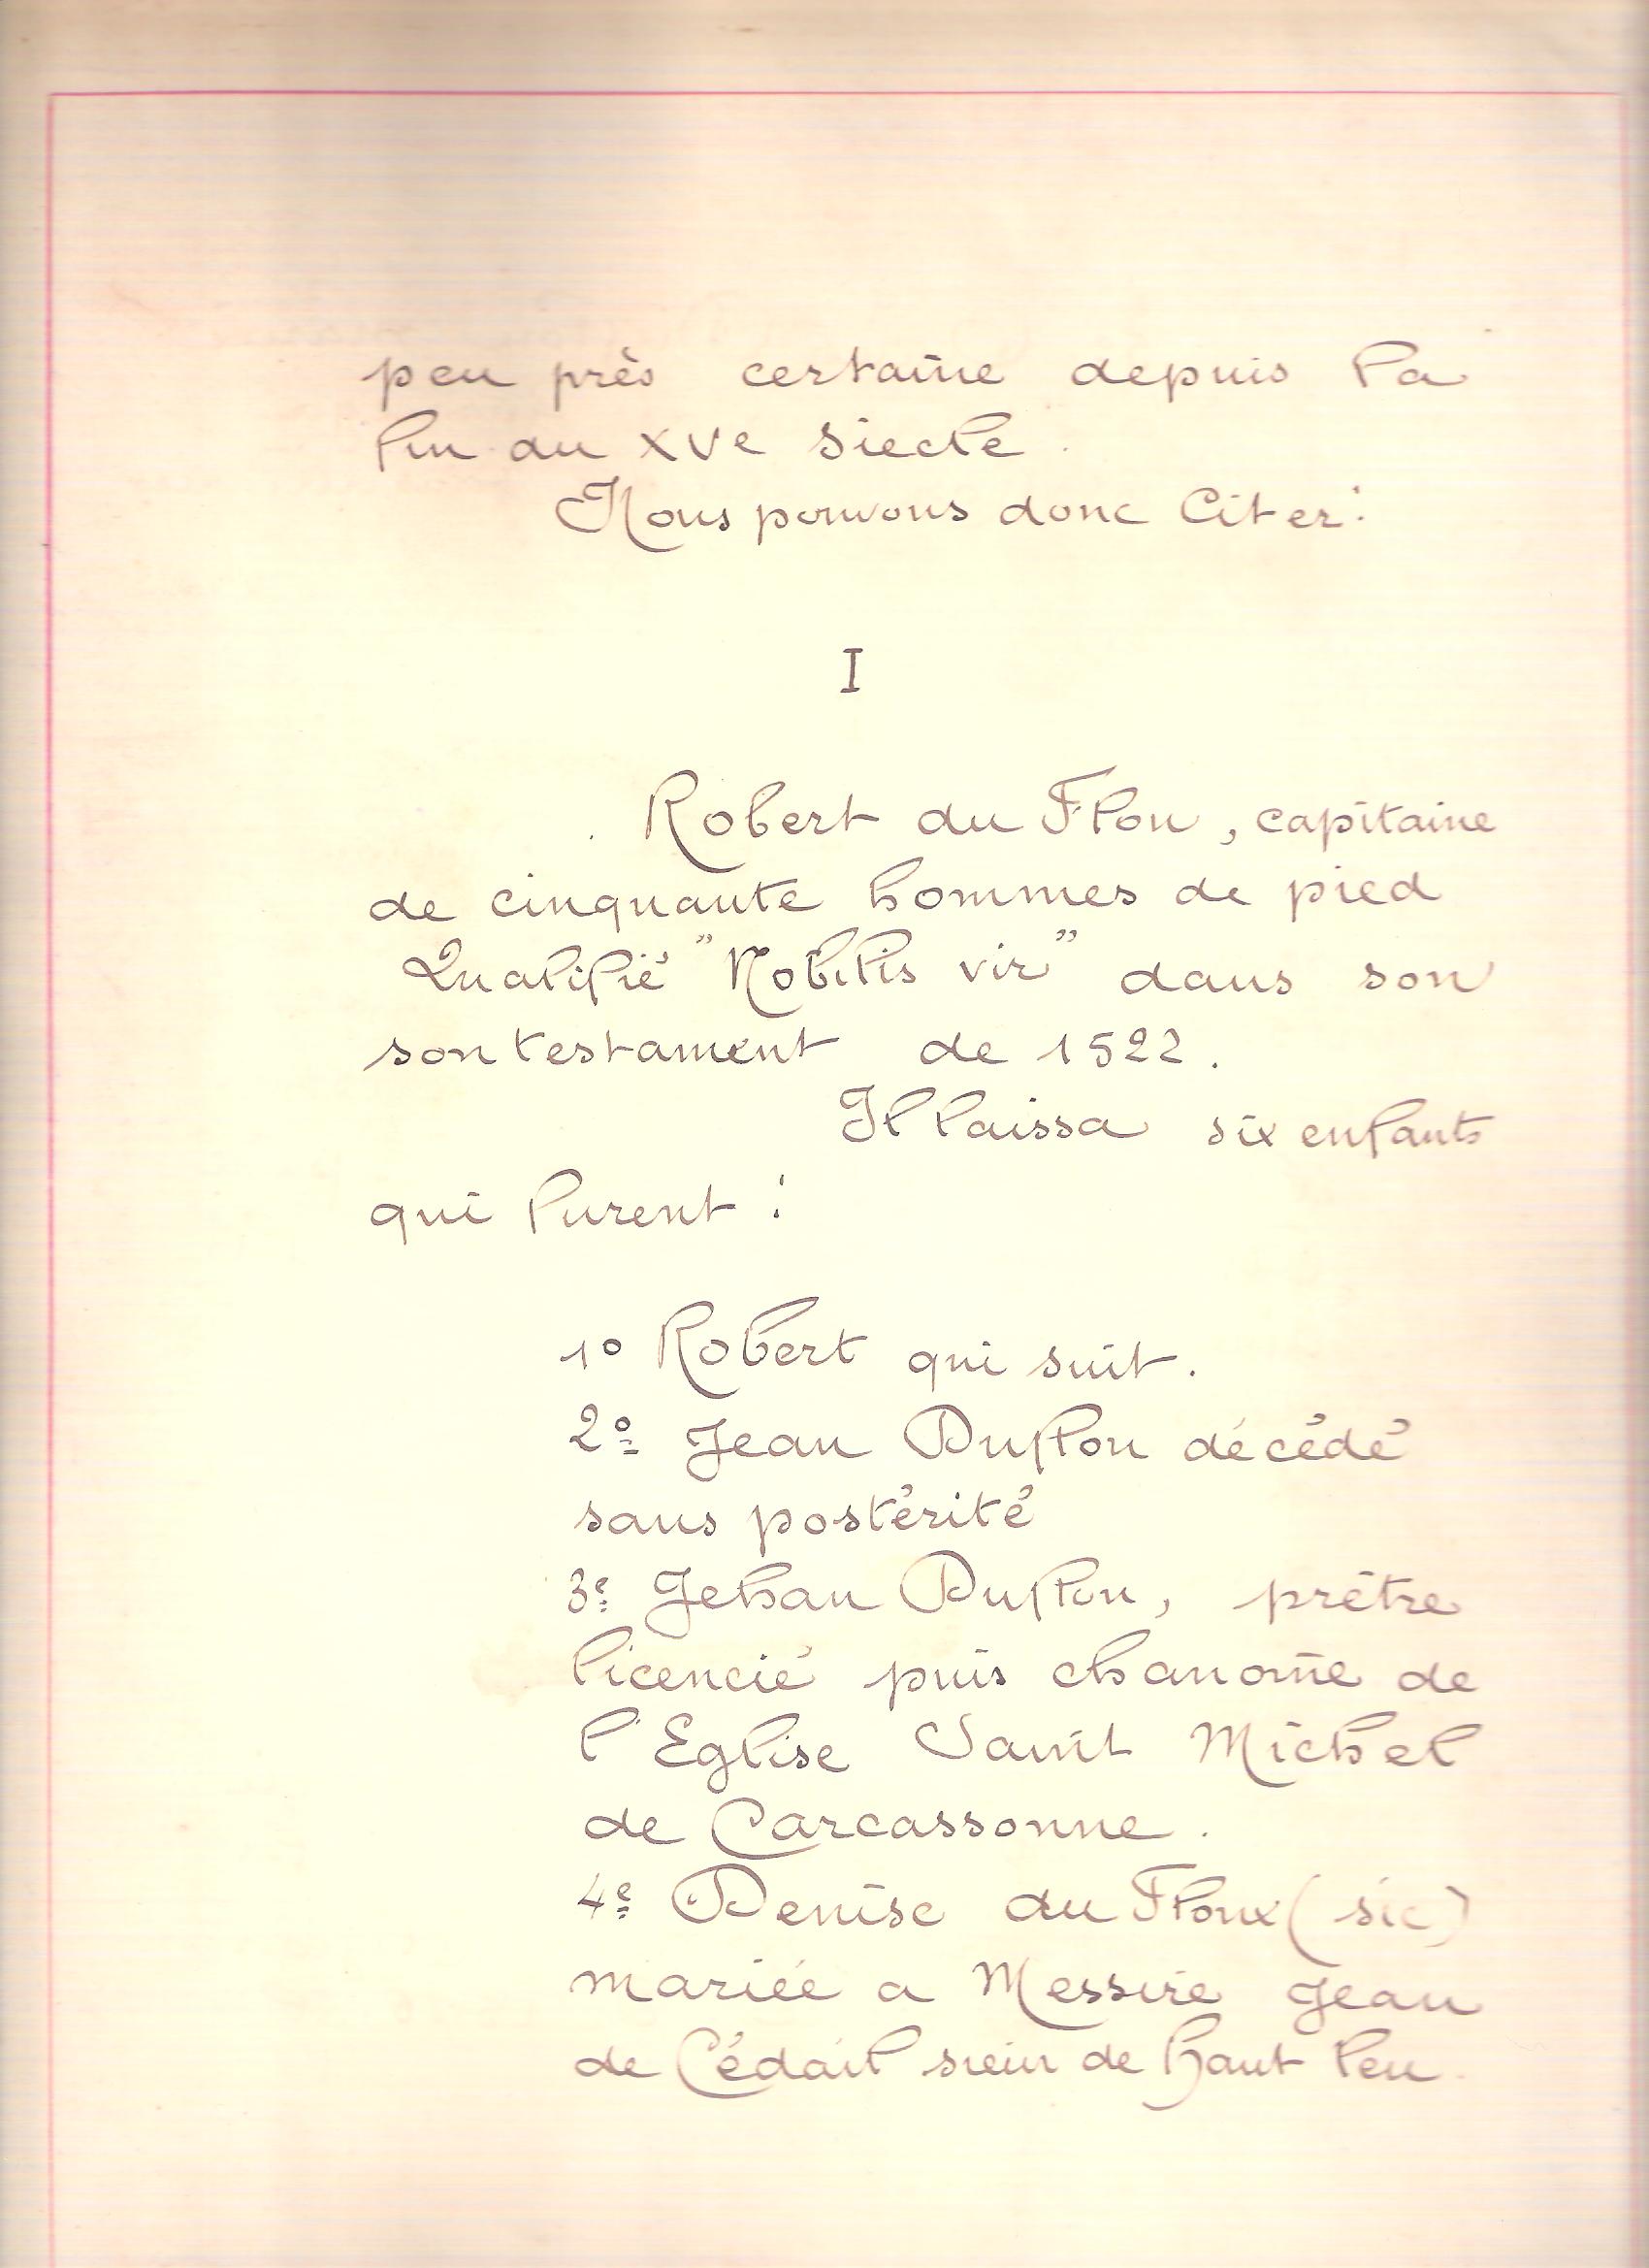 peu près certaine depuis la
fin du XVe siecle.
Nous pouvons donc citer:
I
Robert du Flou, capitaine
de cinquante hommes de pied
Qualifié "Nobilis vir" dans son
son testament de 1522.
Il laissa six enfants
qui furent :
1º Robert qui suit.
2º Jean Duflou décédé
sans postérité
3e Jehan Duflou, prêtre
licencié puis chanoine de
l'Eglise Saint Michel
de Carcassonne.
4e Denise du Floux (sic)
mariée a Messire Jean
de Cédail de haut